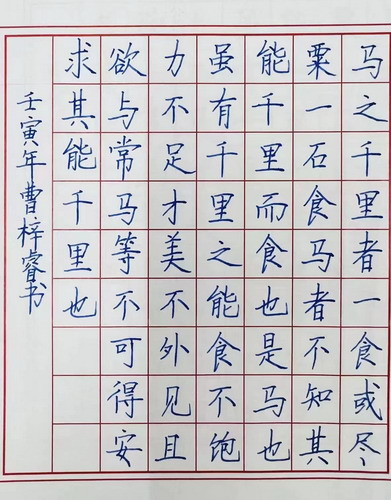 马之千里者一食或尽
粟一石食马者不知其
能千里而食也是马也
虽有千里之能食不饱
力不足才美不外见且
欲与常马等不可得安
求其能千里也
壬寅年曹梓睿书